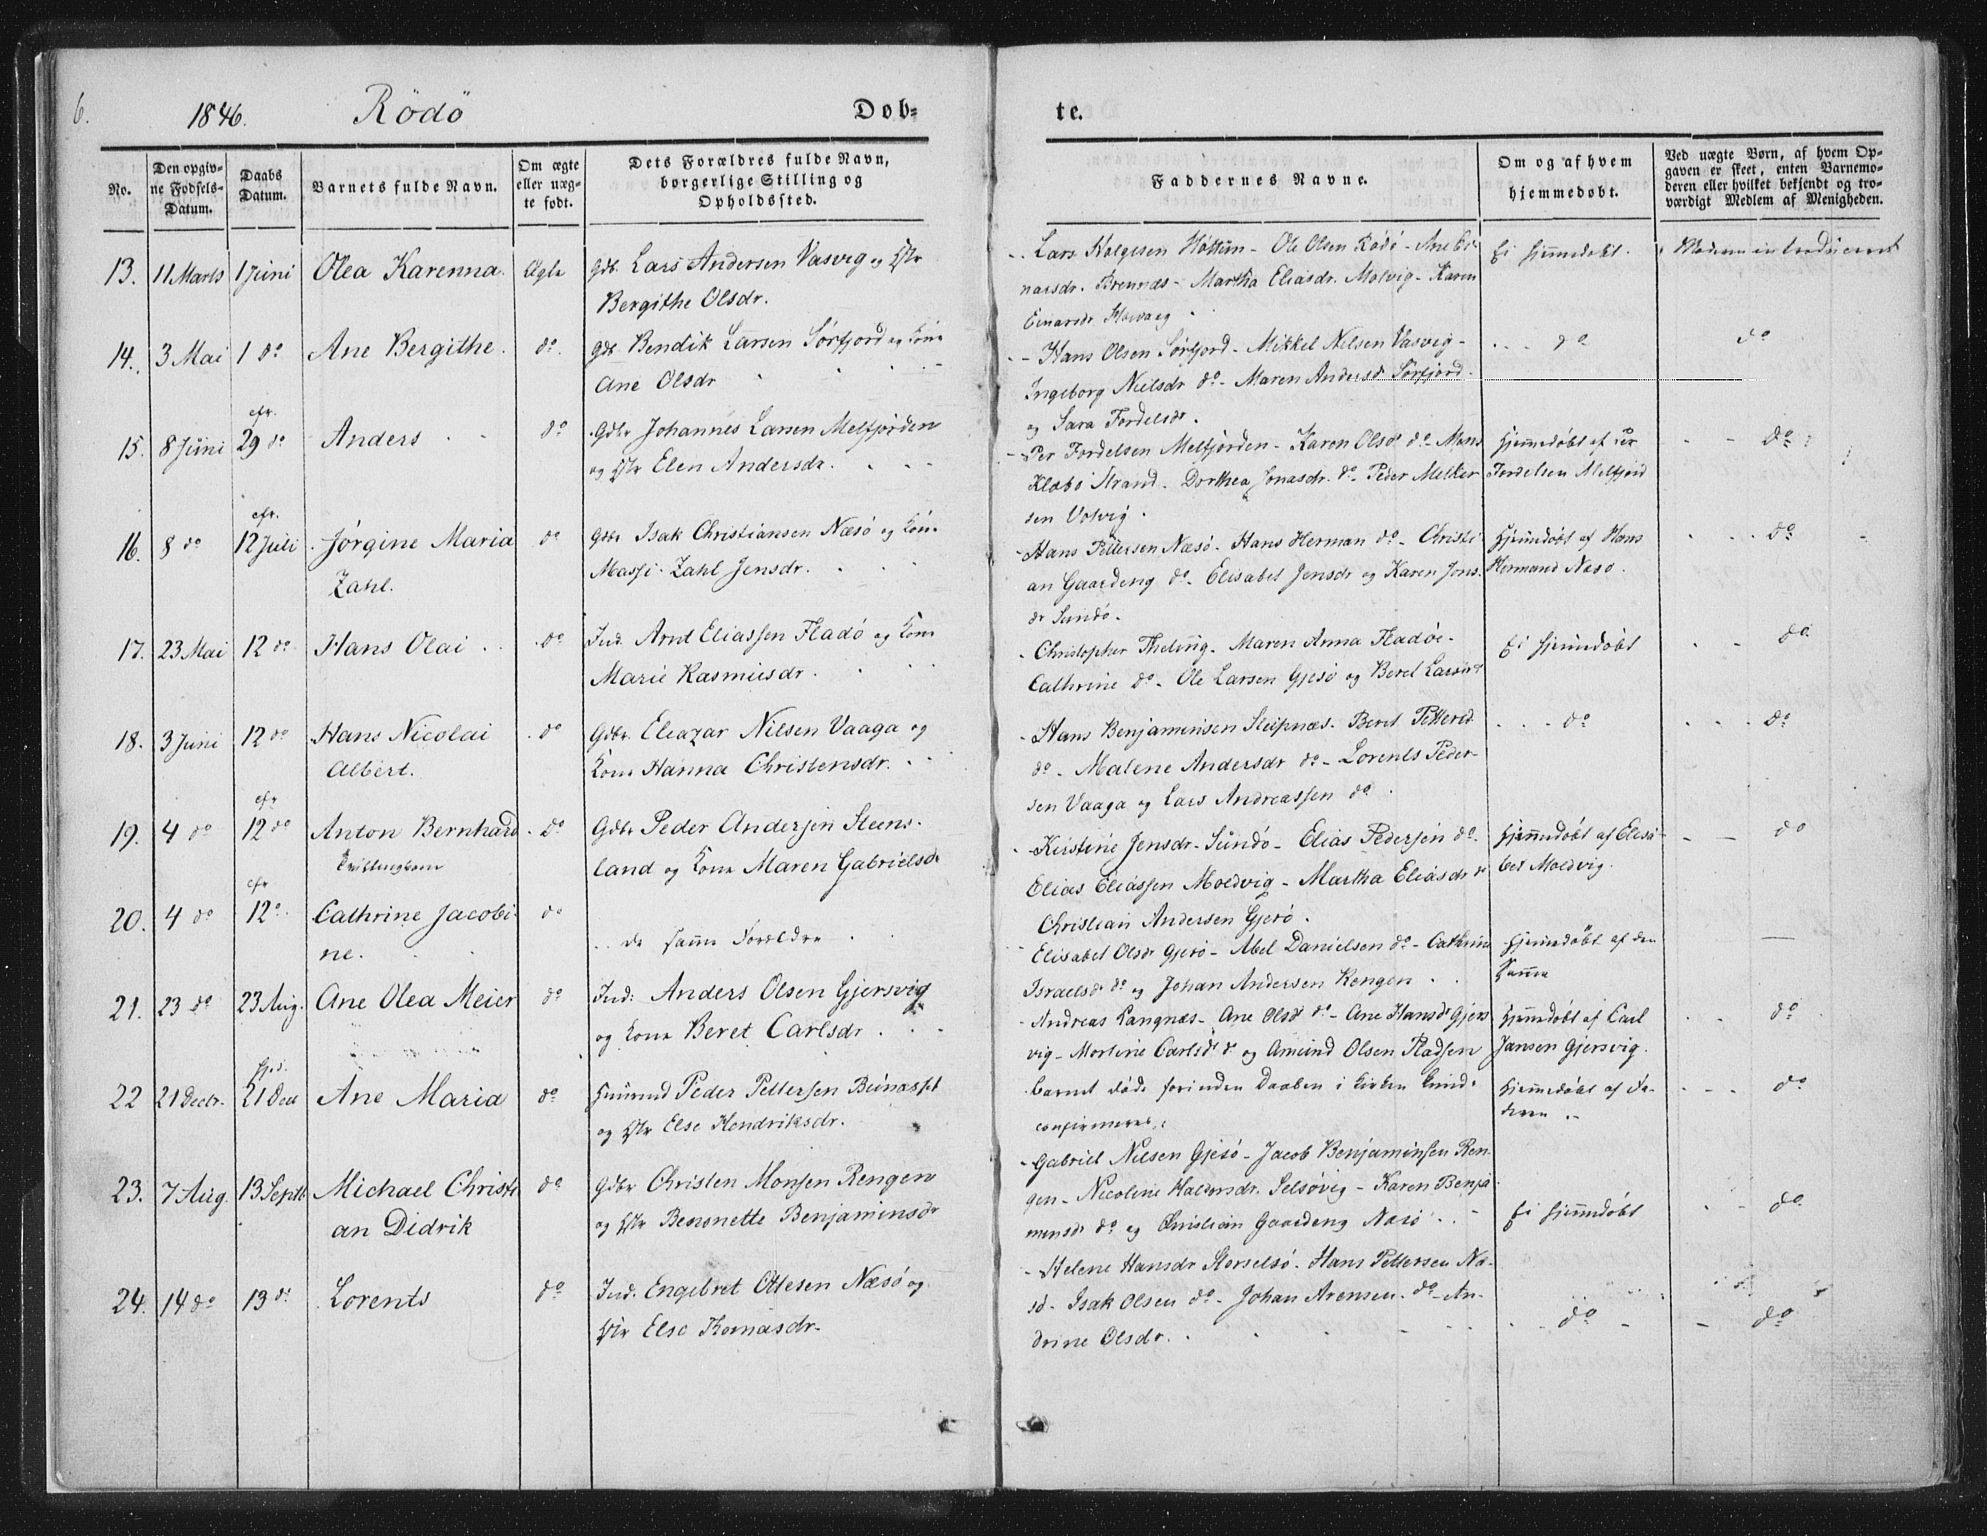 6.
1846.
Rödö
Dob-
te.
No.
Den opgiv-
ne Fødsels-
Datum.
Daabs
Datum.
Barnets fulde Navn.
Om ægte
eller uæg-
te født.
Dets Forældres fulde Navn,
borgerlige Stilling og
Opholdssted.
Faddernes Navne.
Om og af hvem
hjemmedøbt.
Ved uægte Børn, af hvem Op-
gaven er skeet, enten Barnemo-
deren eller hvilket bekjendt og tro-
værdigt Medlem af Menigheden.
13. 11 Marts 1 Juni Olea Karenna. Ægte
Gdb. Lars Andersen Vasvig og Hr
Bergithe Olsdr.
Lars Holgersen Høttun - Ole Olsen Rødø - Ane Ei-
narsdr. Brennæs - Martha Eliasdr. Molvig - Karen
Einarsdr
Ei hjemmedøbt.
Moderen introduceret
14. 3 Mai 1 do Ane Bergithe. do.
Gdb. Bendik Larsen Sørfjord og Kone
Ane Olsdr
- Hans Olsen Sørfjord - Mikkel Nilsen Vasvig -
Ingeborg Nielsdr do - Maren Andersdr Sørfjord.
og Sara Fordelsdr.
do
do
15. 8 Juni efr. 29 do Anders do
Gdbr Johannes Larsen Melfjorden
og Hr Elen Andersdr.
Per Fordelsen Melfjorden - Karen Olsdr do - Mons
Klæbo Strand. Dorthea Jonasdr. do - Peder Melker
sen Volvig.
Hjemmedøbt af Per
Fordelsen Melfjord
do
16. 8 do efr. 12 Juli Jørgine Maria do
Zahl.
Gdbr Isak Christiansen Næsø og Kone
Massi Zahl Jensdr.
Hans Pettersen Næsø - Hans Herman do - Christi
an Gaardeng do - Elisabet Jensdr og Karen Jons
dr Sundø.
Hjemmedøbt af Hans
Hermand Næsø.
do
17. 23 Mai 12 do Hans Olai do
Ind. Arnt Eliassen Fladø og Kone
Marie Rasmusdr.
Christopher Theting. Maren Anna Fladøe -
Cathrine do - Ole Larsen Gjesø og Beret Larsdr
Ei hjemmedøbt
do
18. 3 Juni 12 do Hans Nicolai do
Albert.
Gdbr. Eleazar Nilsen Vaaga og
Kone Hanna Christensdr.
Hans Benjaminsen Sleipnæs. Beret Pettersd
do - Malene Andersdr do - Lorents Peder-
sen Vaaga og Lars Andreassen do.
do
do
19. 4 do efr 12 do Anton Bernhard do
Tvillingbørn
Gdbr Peder Andersen Steens-
land og Kone Maren Gabrielsdr
Kirstine Jensdr - Sundø - Elias Pedersen do.
Elias Eliassen Moldvig - Martha Eliasdr do
Christian Andersen Gjerø.
Hjemmedøbt af Elisa
bet Moldvig.
do
20. 4 do efr 12 do. Cathrine Jacobi- do
ne.
de samme Forældre
Elisabet Olsdr Gjerø - Abel Danielsen do - Cathrine
Israelsdr do og Johan Andersen Rengen
Hjemmedøbt af den
Samme
21. 23 do 23 Aug. Ane Olea Meier do
Ind: Anders Olsen Gjersvig
og Kone Beret Carlsdr
Andreas Langnæs - Ane Olsdr do - Ane Hansdr Gjers
vig - Mortine Carlsdr do og Amund Olsen Fladsen
Hjemmedøbt af Carl
Jansen Gjersvig.
do
22 21 Decbr. hjd. 21 Dec Ane Maria do
Huusmd Peder Pettersen
og Hr Else Hendriksdr.
Barnet døde forinden Daaben i Kirken kunde
confirmeres.
Hjemmedøbt af Fa-
deren
do
23. 7 Aug. 13 Septb. Michael Christi do
an Didrik
Gdbr Christen Monsen Rengen
og Hr Benonette Benjaminsdr
Gabriel Nilsen Gjesø - Jacob Benjaminsen Ren-
gen - Nicoline Haldorsdr. Selsøvig - Karen Benja
minsdr do og Christian Gaardeng Næsø
Ei hjemmedøbt
do
24. 14 do 13 do Lorents do
Ind. Engebret Ottesen Næsø og
Hr Else Thomasdr.
- Helene Hansdr Storselsø. Hans Pettersen Næ-
sø - Isak Olsen do - Johan Arensen. do - An-
drine Olsdr.
do
do